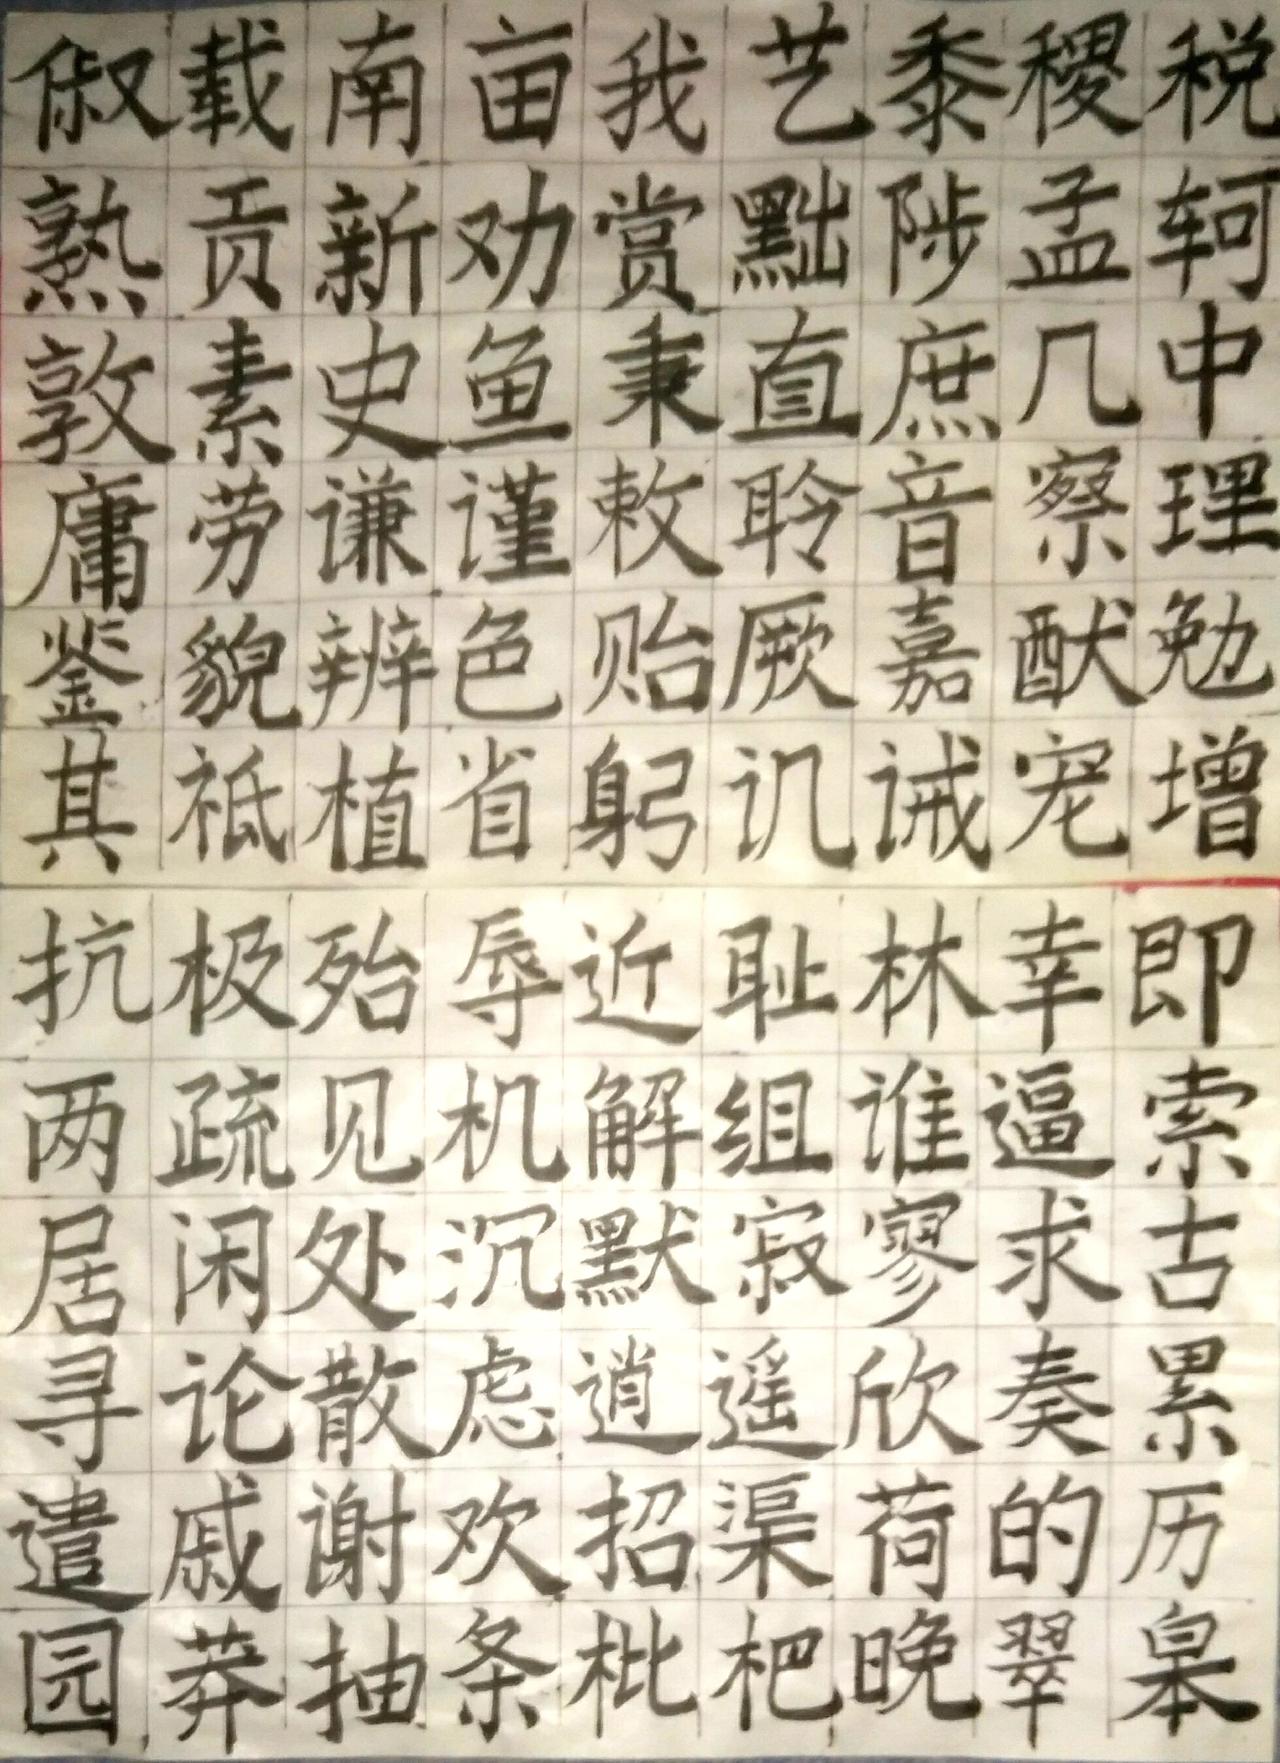 俶载南亩我艺黍稷税
熟贡新劝赏黜陟孟轲
敦素史鱼秉直庶几中
庸劳谦谨敕聆音察理
鉴貌辨色贻厥嘉猷勉
其祗植省躬讥诫宠增
抗极殆辱近耻林幸即
两疏见机解组谁逼索
居闲处沉默寂寥求古
寻论散虑逍遥欣奏累
遣戚谢欢招渠荷的历
园莽抽条枇杷晚翠皋